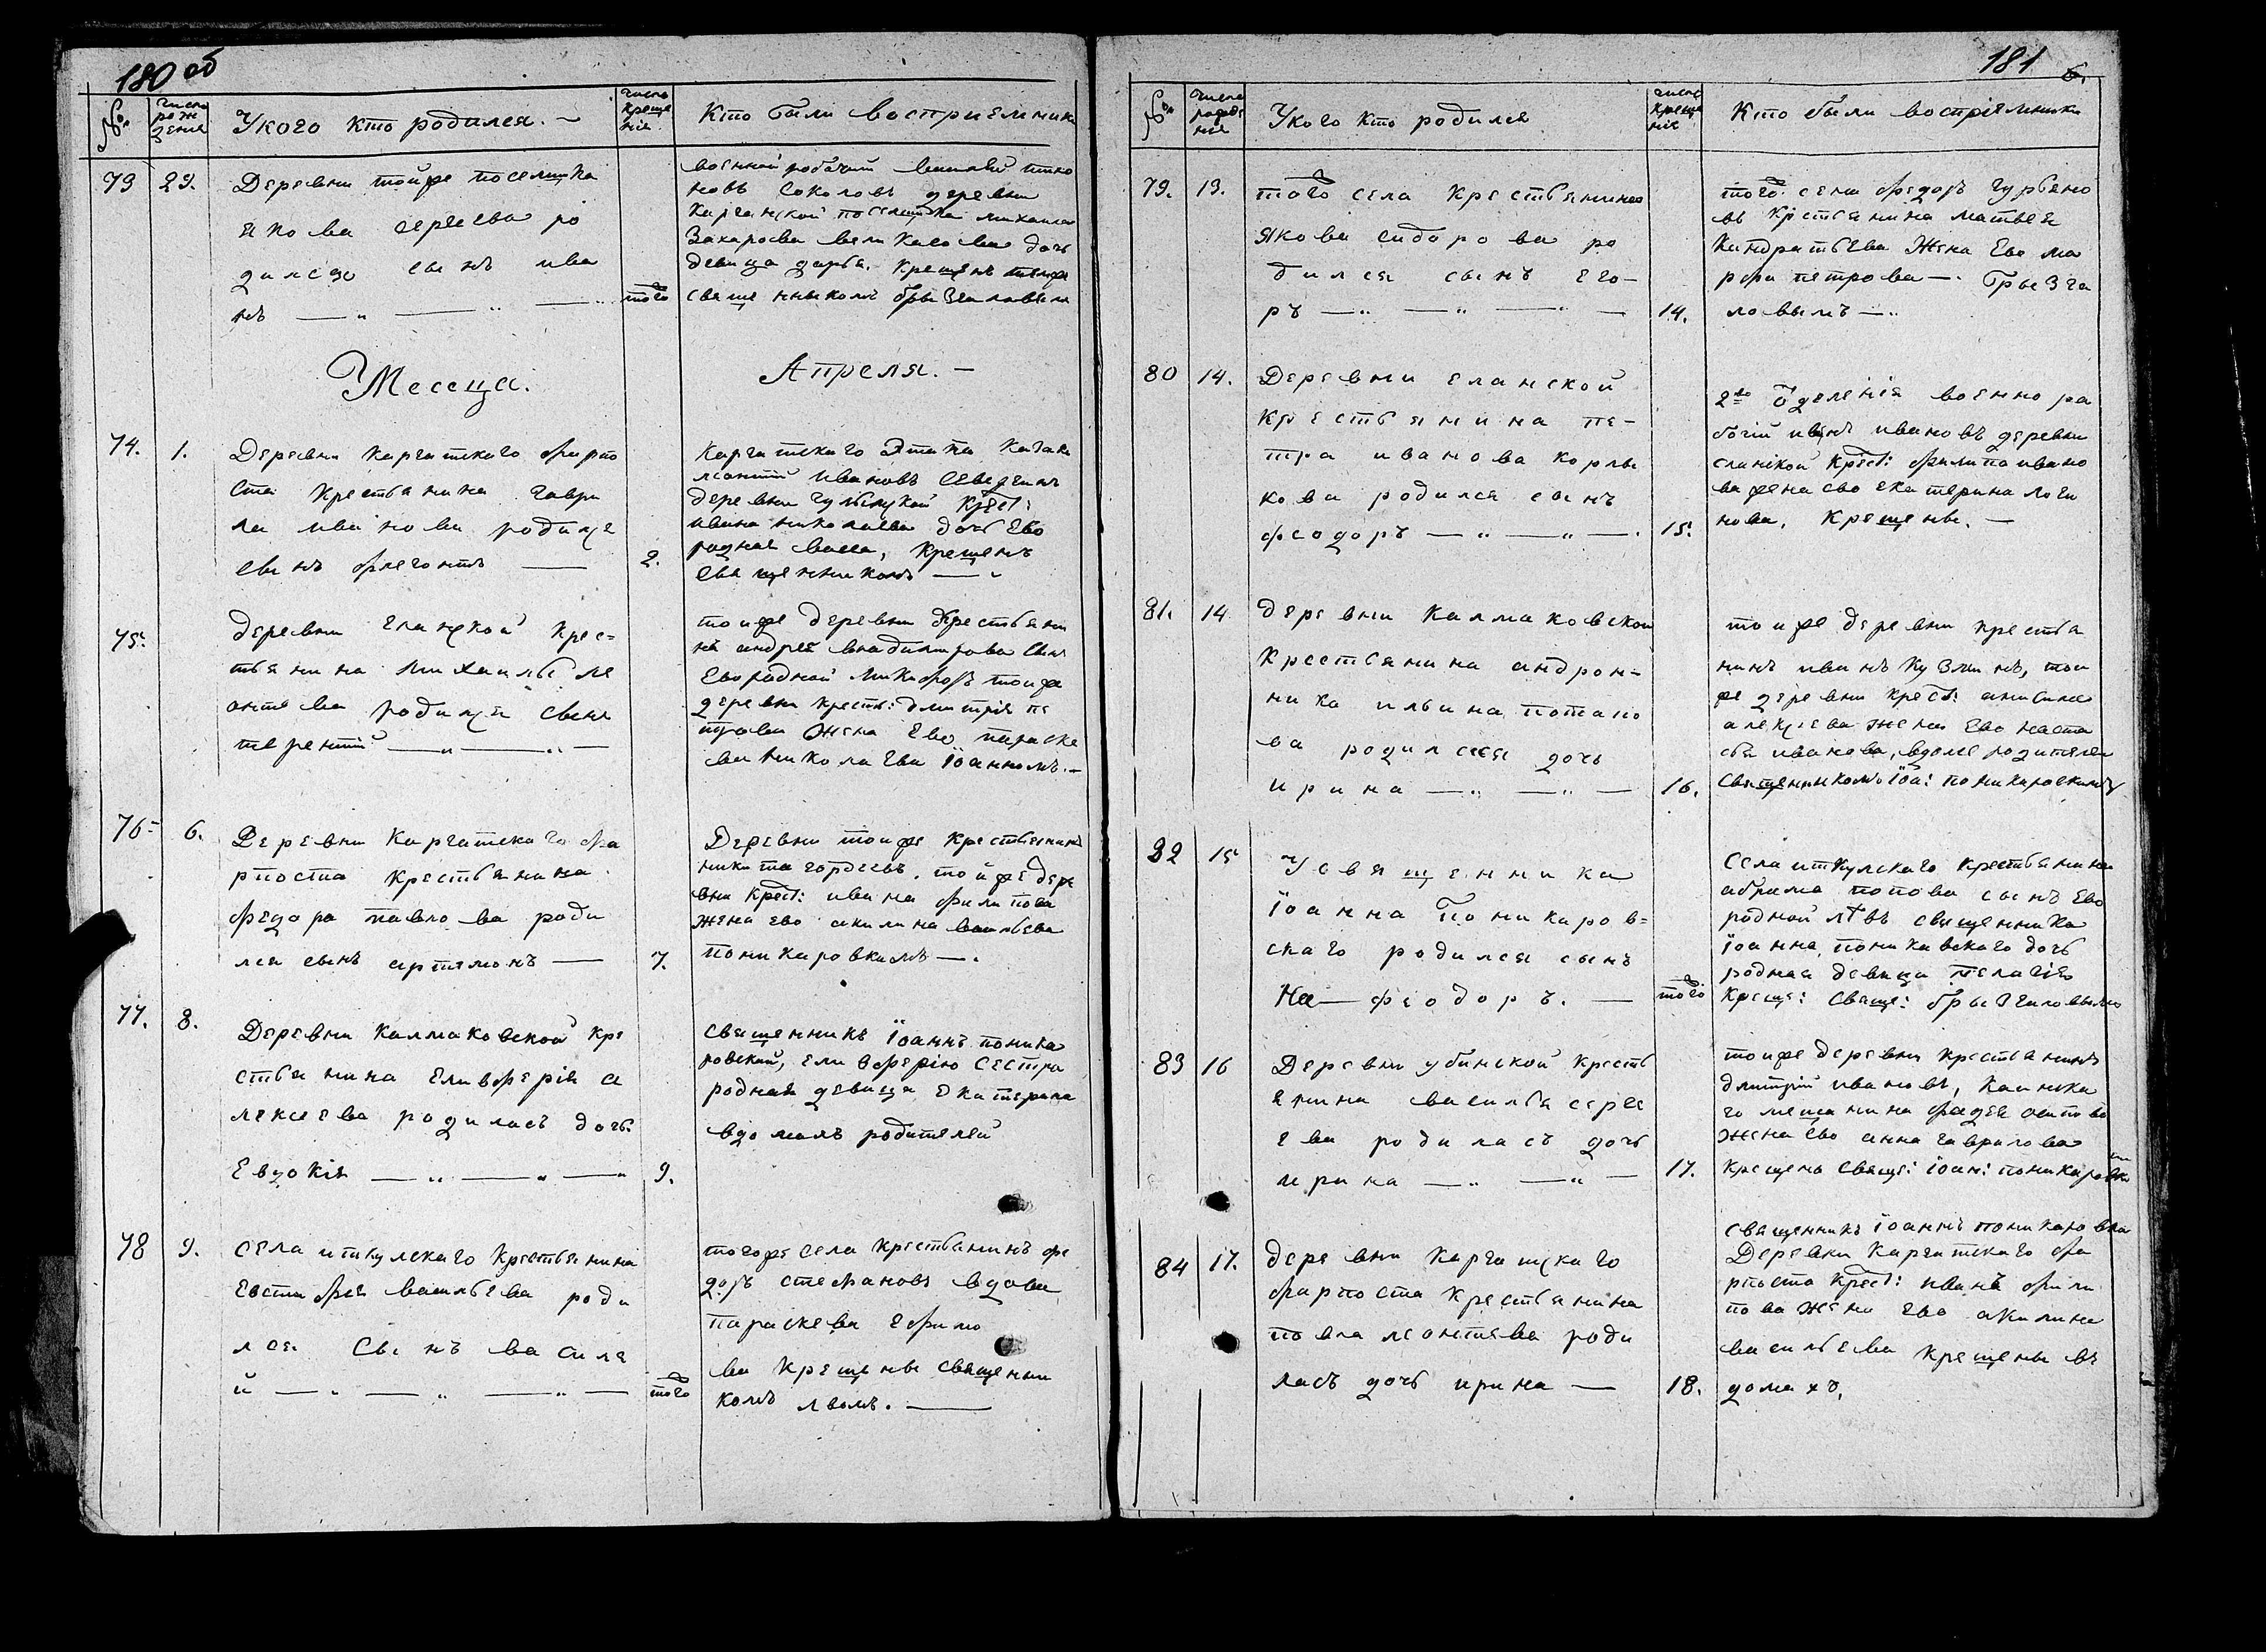 180 об
№
число рождения
Укого кто родился. —
число крещения.
Кто были восприемники
73
29.
Деревни тойже поселщика
якова сергеева ро
дился сынъ ива
нъ — „ — „ —
того
новъ соколовъ деревни
поселщика михаила
Захарова дочь
девица дарья. Крещенъ темже
священникомъ
Месеца.
Апреля. —
74.
1.
Деревни каргатского форпо
ста крестьянина гаври
ла иванова родился
сынъ флегонтъ —
2.
Каргатского Этапа Казакъ
леонтий ивановъ
деревни крест:
ивана николаева дочь Ево
родная васса, Крещенъ
священникомъ — „
75.
деревни еланской крес=
тьянина михаилы ле
онтева родился сынъ
терентий — „ — „ —
тойже деревни крестьяни
на андрея владимирова сынъ
Евородной никифоръ тойже
деревни крестъ: дмитрия пе
трова жена Ево параске
ва николаева їоанномъ. —
76=
6.
Деревни Каргатскаго фо
рпоста крестьянина
федора павлова роди
лся сынъ артямонъ —
7.
Деревни тойже крестьянинъ
никита гордеевъ. тойже дере
вни крест: ивана филипова
жена ево акилина васильева
поникаровкимъ — .
77.
8.
Деревни Калмаковской кре
стьянина Елиѳферія а
лексеева родилась дочь
Евдокія — „ — „ — „
9.
священникъ їоаннъ поника
ровский, елиѳферію сестра
родная девица екатерина
вдомахъ родителей
78
9.
села иткулскаго крестьянина
Евстифея васильева роди
лся сынъ василе
й — „ — „ — „ —
того
тогоже села крестьянинъ фе
доръ стефановъ вдова
параскева ефимо
ва крещены священни
комъ лвомъ. —
181
№
число рождения
Укого кто родился
число крещение
Кто были восприемники
79.
13.
того села крестьянина
якова сидорова ро
дился сынъ его-
ръ — „ — „ — „ —
14.
того села федоръ гурьяно
въ крстьянина матвея
кандратьева жена Ево ма
рфа петрова — .
ловымъ — „
80
14.
Деревни еланской
крестьянина пе-
тра иванова корлы
кова родился сынъ
феодоръ — „ — „ — .
15.
2го Оделенія военно ра
бочий иванъ ивановъ деревни
еланской крест: филипа ивано
ва жена ево екатерина логи
нова. Крещены. —
81.
14
деревни калмаковской
крестьянина андрон-
ника ильина потапо
ва родилася дочь
ирина — „ — „ —
16.
тойже деревни крестья
нинъ иванъ Кузминъ, той
же деревни крест: анисима
алексеева жена Ево наста
сья иванова, вдоме родителей
Священникомъ їоа: поникаровкимъ
82
15
Усвященника
їоанна Поникаров=
скаго родился сынъ
феодоръ. —
того
Села иткулскаго крестьянина
абрама попова сынъ Ево
родной лвъ священника
їоанна поникавскаго дочь
родная девица пелагія
Креще: Свяще:
83
16
Деревни убинской кресть
янина василья серге
ева родиласъ дочь
ирина — „ — „ —
17.
тойже деревни крестьянинъ
дмитрій ивановъ, каинска
го мещанина фадея осипова
жена ево анна гаврилова
крещенъ свяще: їоан: поникаровки
84
17.
деревни каргатскаго
форпоста крестьянина
павла леонтева роди
ласъ дочь ирина —
18.
священникъ їоаннъ поникаровка
Деревни каргатскаго фо
рпоста крест: иванъ фили
пова жена ево акилина
васильева крещены въ
домахъ.